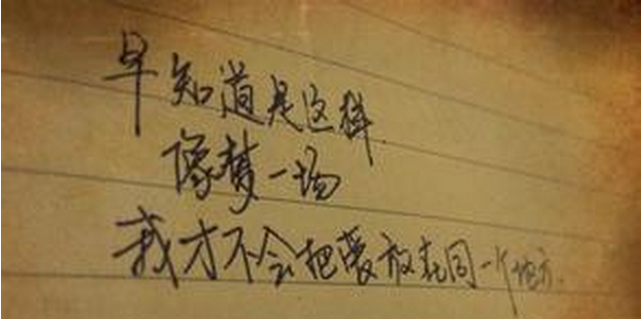 早知道是这样
像梦一场
我才不会把爱放在同一个地方.